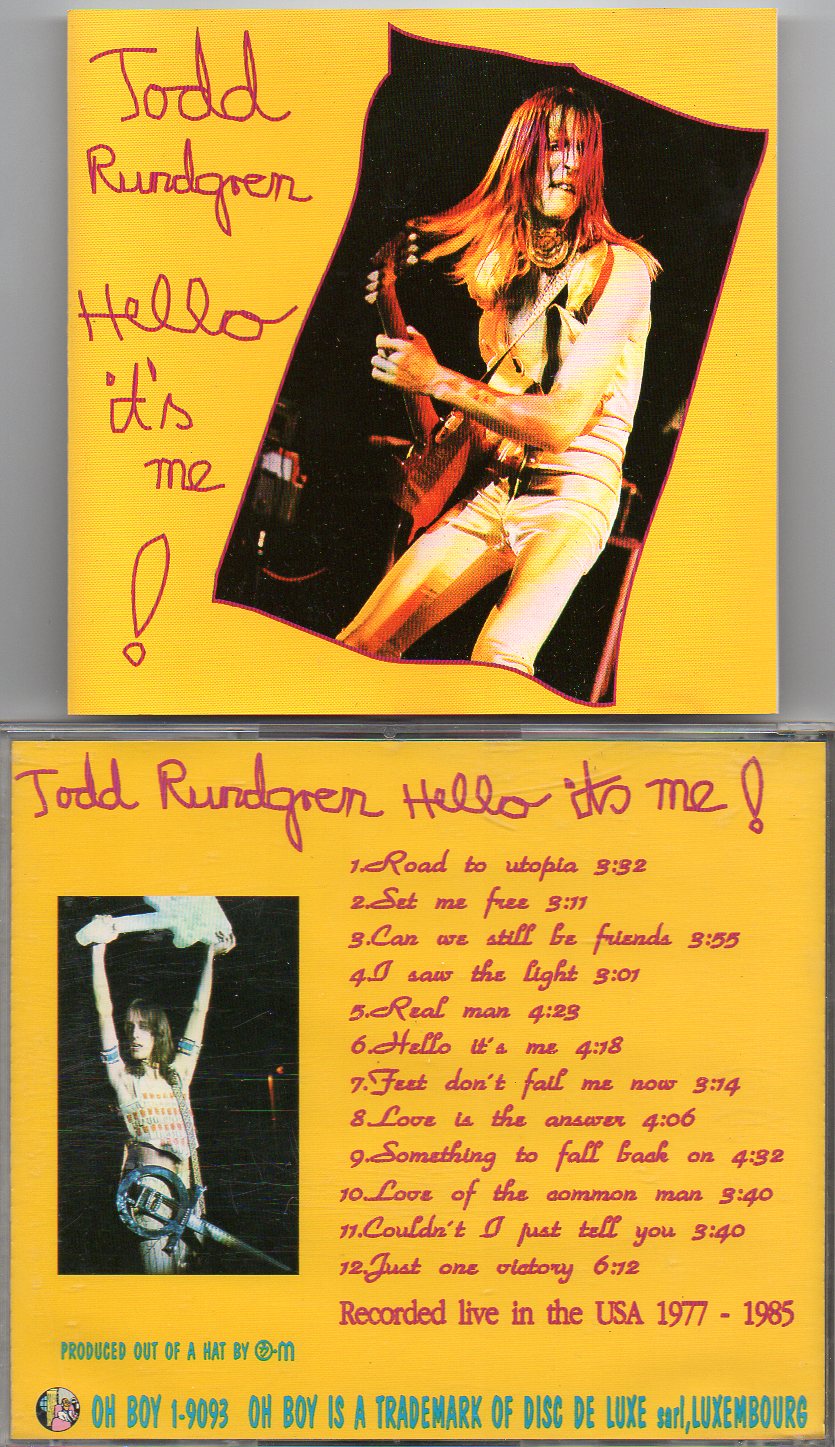 Todd
Rundgren
Hello
it's
me
!
Todd Rundgren Hello it's me!
1.Road to utopia 3:32
2.Set me free 3:11
3.Can we still be friends 3:55
4.I saw the light 3:01
5.Real man 4:23
6.Hello it's me 4:18
7.Feet don't fail me now 3:14
8.Love is the answer 4:06
9.Something to fall back on 4:32
10.Love of the common man 3:40
11.Couldn't I just tell you 3:40
12.Just one victory 6:12
Recorded live in the USA 1977 - 1985
PRODUCED OUT OF A HAT BY -m
OH BOY 1-9093 OH BOY IS A TRADEMARK OF DISC DE LUXE sarl,LUXEMBOURG